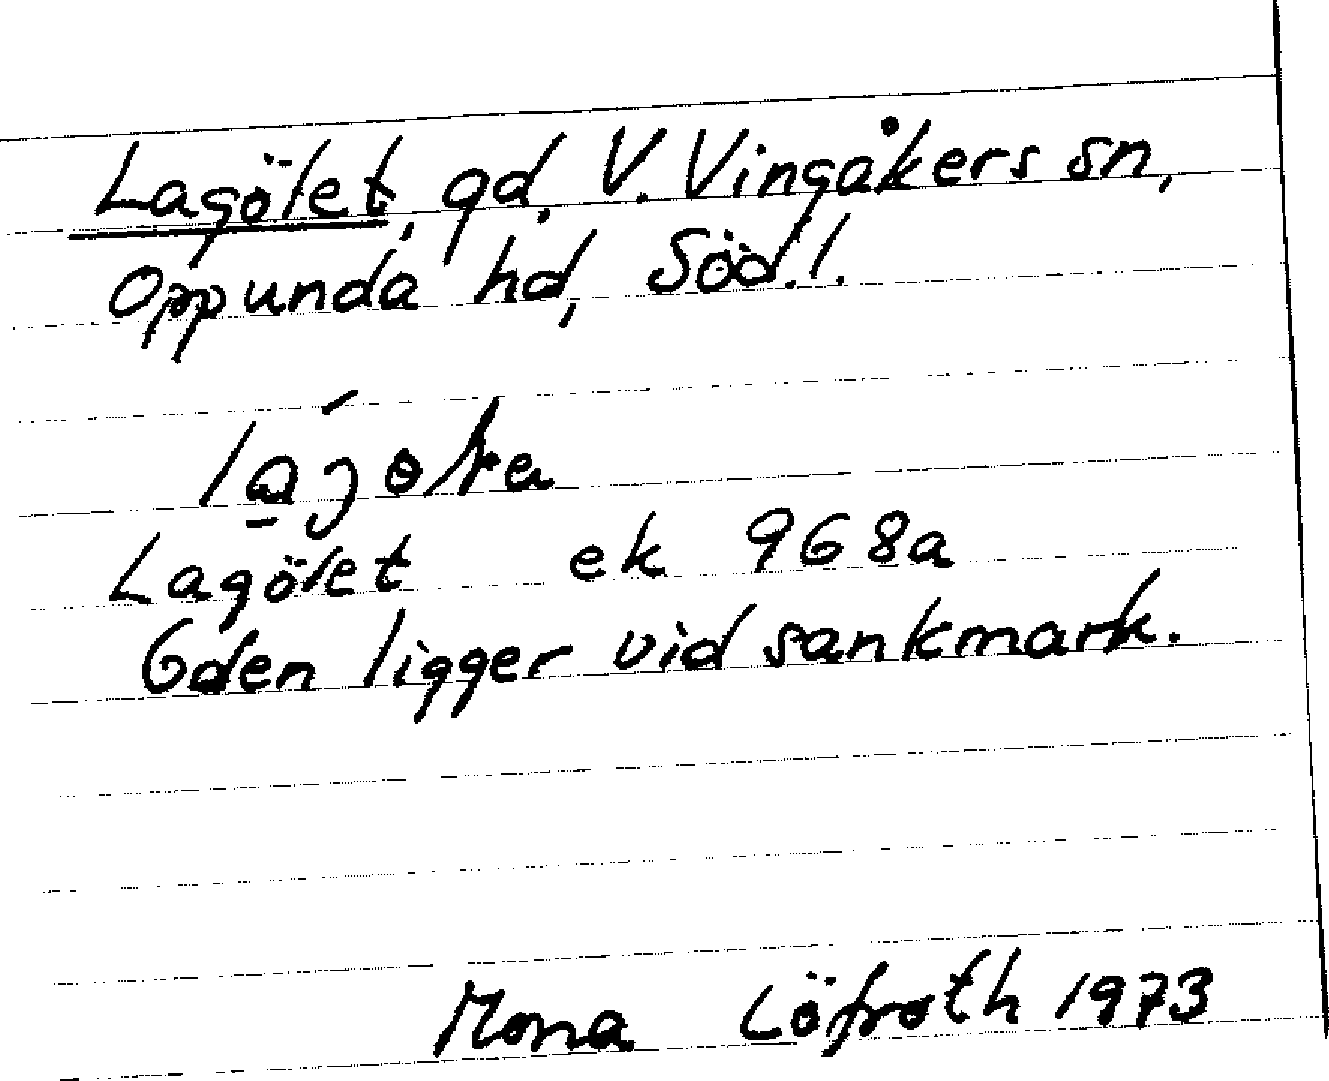 Lagölet, gd, V. Vingåkers sn,
Oppunda hd, Söd.l.
Lagölet ek 968a
Gden ligger vid sankmark.
Mona Löfroth 1973